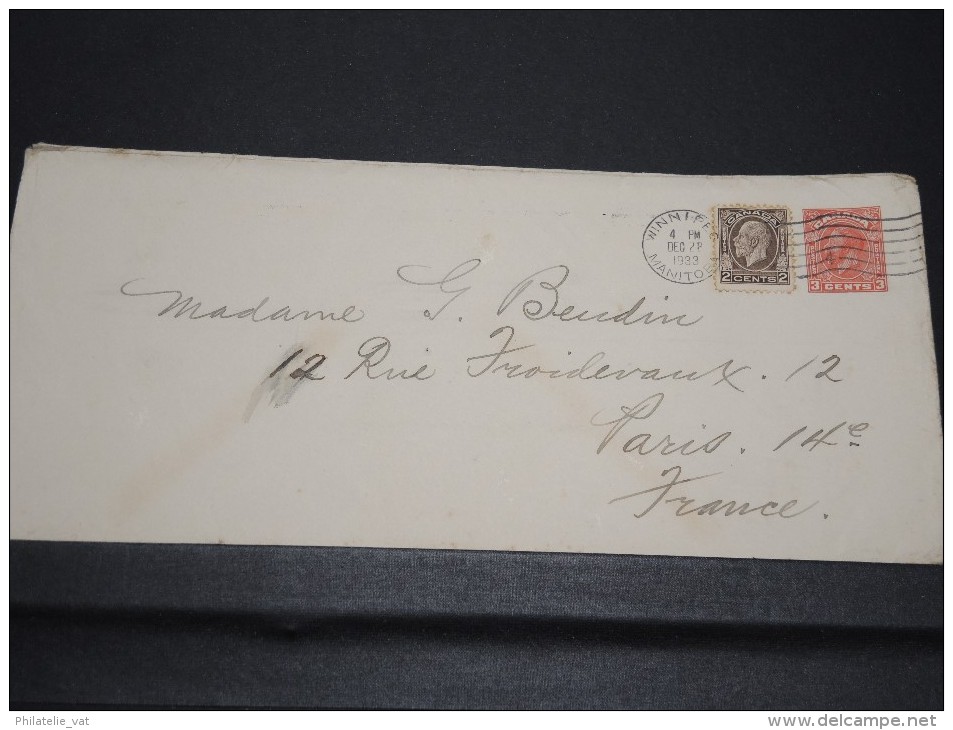 WINNIPEG
4 PM
DEC
1933
MANITOBA
CANADA
2 CENTS 2
CANADA
3 CENTS 3
Madame G. Beudin
12 Rue Froidevaux. 12
Paris. 14e
France.
Philatelie_vat
www.delcampe.net